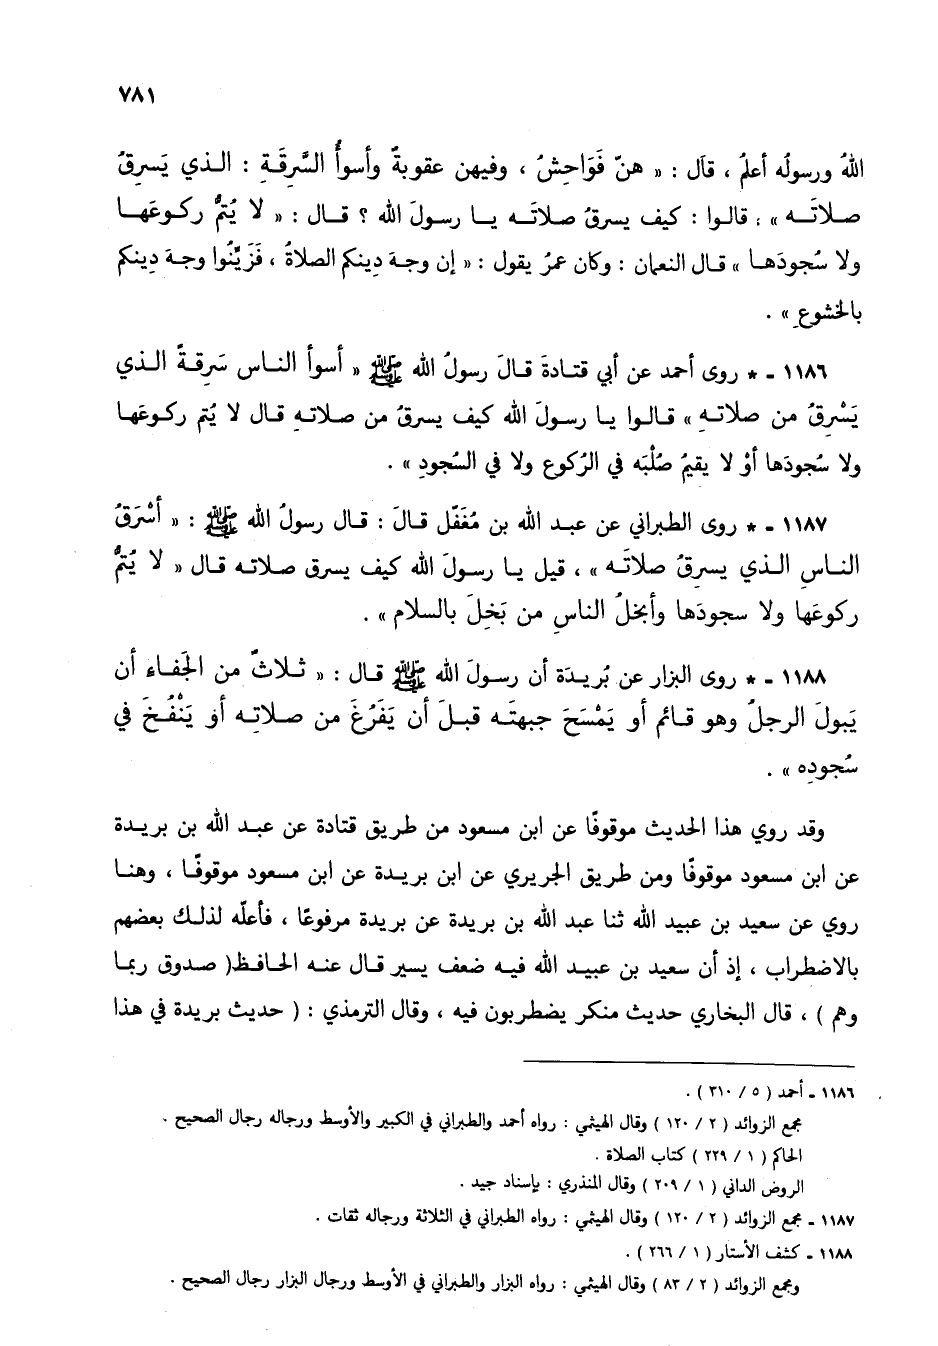 ٧٨١
اللهُ ورسولُه أعلمُ ، قال : « هنّ فَوَاحِشُ ، وفيهن عقوبةٌ وأسوأُ السَّرِقَةِ : الذي يَسرِقُ
صلاتَه » ، قالوا : كيف يسرقُ صلاتَه يا رسولَ الله ؟ قال : « لا يُتمُّ ركوعَها
ولا سُجودَها » قال النعمان : وكان عمرُ يقول : « إن وجهَ دِينِكم الصلاةُ ، فَزَيِّنُوا وجهَ دِينِكم
بالخشوعِ » .
١١٨٦ - * روى أحمد عن أبي قتادةَ قالَ رسولُ الله ﷺ « أسوأ الناس سَرِقةً الذي
يَسْرِقُ من صلاتهِ » قالوا يا رسولَ الله كيف يسرقُ من صلاتهِ قال لا يُتم ركوعَها
ولا سُجودَها أوْ لا يقيمُ صُلْبَه في الرُكوع ولا في السُجودِ » .
١١٨٧ - * روى الطبراني عن عبد الله بن مُغَفّل قالَ : قال رسولُ الله ﷺ : « أسْرَقُ
الناسِ الذي يسرقُ صلاتَه » ، قيل يا رسولَ الله كيف يسرق صلاته قال « لا يُتمُّ
ركوعَها ولا سجودَها وأبخلُ الناسِ من بَخِلَ بالسلام » .
١١٨٨ - * روى البزار عن بُريدَة أن رسولَ الله ﷺ قال : « ثلاثٌ من الجَفاء أن
يَبولَ الرجلُ وهو قائم أو يَمْسَحَ جبهتَه قبلَ أن يَفَرُغَ من صلاتِه أو يَنْفُخَ في
سُجودِه » .
وقد روي هذا الحديث موقوفًا عن ابن مسعود من طريق قتادة عن عبد الله بن بريدة
عن ابن مسعود موقوفًا ومن طريق الجريري عن ابن بريدة عن ابن مسعود موقوفًا ، وهنا
روي عن سعيد بن عبيد الله ثنا عبد الله بن بريدة عن بريدة مرفوعًا ، فأعلّه لذلك بعضهم
بالاضطراب ، إذ أن سعيد بن عبيد الله فيه ضعف يسير قال عنه الحافظ ( صدوق ربما
وهم ) ، قال البخاري حديث منكر يضطربون فيه ، وقال الترمذي : ( حديث بريدة في هذا
١١٨٦ - أحمد ( ٥ / ٣١٠ ) .
مجمع الزوائد ( ٢ / ١٢٠ ) وقال الهيثمي : رواه أحمد والطبراني في الكبير والأوسط ورجاله رجال الصحيح .
الحاكم ( ١ / ٢٢٩ ) كتاب الصلاة .
الروض الداني ( ١ / ٢٠٩ ) وقال المنذري : بإسناد جيد .
١١٨٧ - مجمع الزوائد ( ٢ / ١٢٠ ) وقال الهيثمي : رواه الطبراني في الثلاثة ورجاله ثقات .
١١٨٨ - كشف الأستار ( ١ / ٢٦٦ ) .
ومجمع الزوائد ( ٢ / ٨٣ ) وقال الهيثمي : رواه البزار والطبراني في الأوسط ورجال البزار رجال الصحيح .